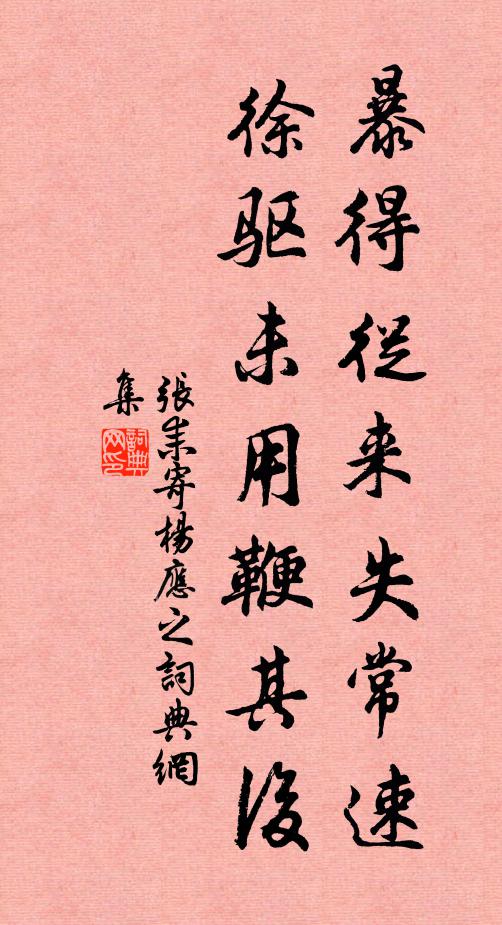 暴得從来失常速
徐驱未用鞭其後
張耒寄楊應之詞典網
集
詞典
网印